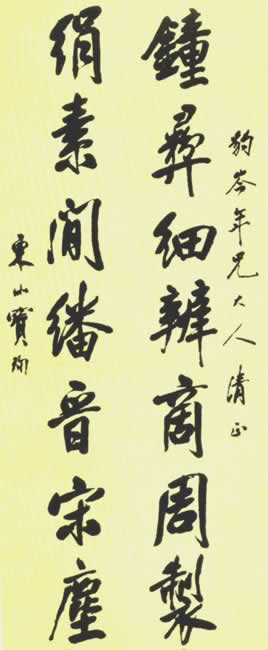 豹岑年兄大人清正
鐘彝細辨商周製
絹素閒繙晋宋塵
東山寶珣